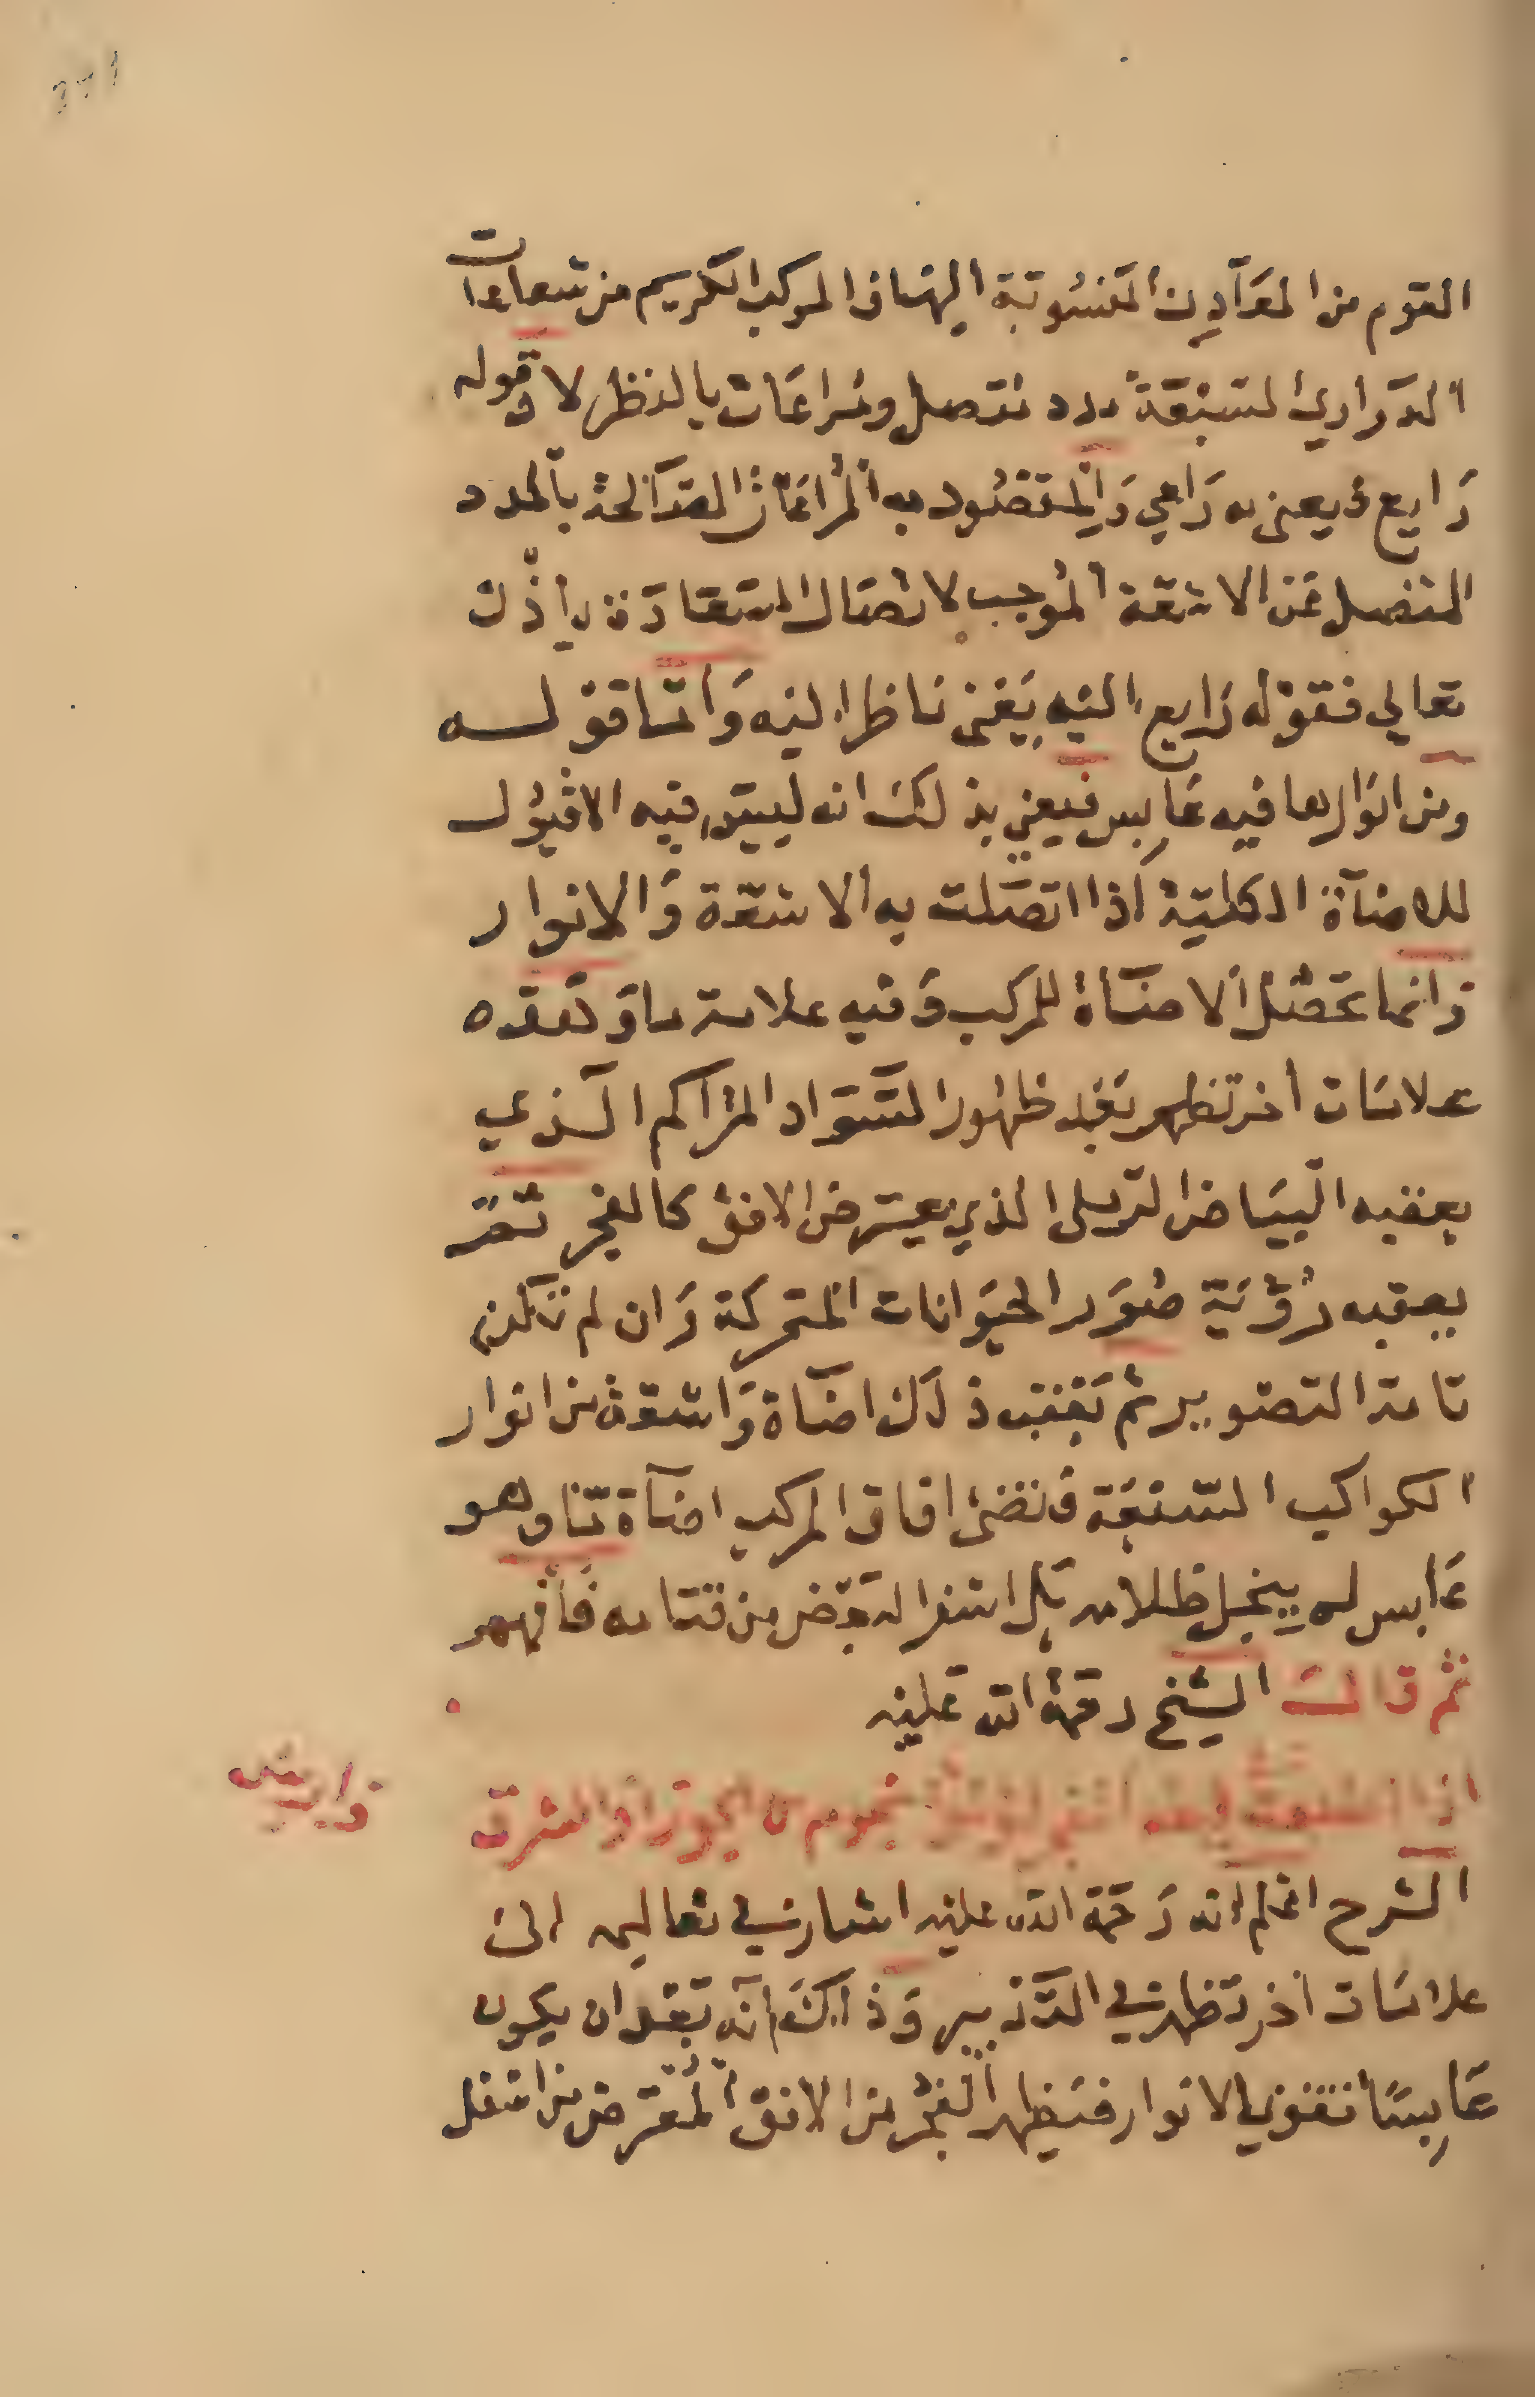 القوم من المعادن المنسوبة اليها فالمركب الكريم من شعاعات
الدراري السبعة مدد متصل ومراعات بالنظر لا وقوله
رايع يعني به راعي والمقصود به المراعاة الصالحة بالمدد
المتصل عن الاشعة الموجب لاتصال السعادة باذن
تعالي فقوله رايع اليه يعني ناظرا ليه واما قوله
ومن انوارها فيه عابس فيعني بذلك انه ليبتدي فيه القبول
للاضآة الكلية اذا اتصلت به الاشعة والانوار
وانما تحصل الاضآة للمركب وفيه علامة ما وبعده
علامات أخر تظهر بعد ظهور السواد المتراكم الذي
يعقبه البياض الذي يعترض الافق كالفجر ثم
يعقبه رؤية صور الحيوانات المتحركة وان لم تكن
تامة التصوير ثم تعقب ذلك اضآة واشعة من انوار
الكواكب السبعة فتضئ افاق المركب اضآة ما وهو
عابس لم ينجل ظلامه بل اسفر البعض من قتامه فافهم
ثم قال الشيخ رحمة الله عليه
اذا نجوم الجو والمشرق
الشرح اعلم انه رحمة الله عليه اشار في تعاليمه الى
علامات أخر تظهر في التدبير وذلك انه بعد ان يكون
عابسا تقوي الانوار فيظهر الفجر من الافق المعترض من اسفل